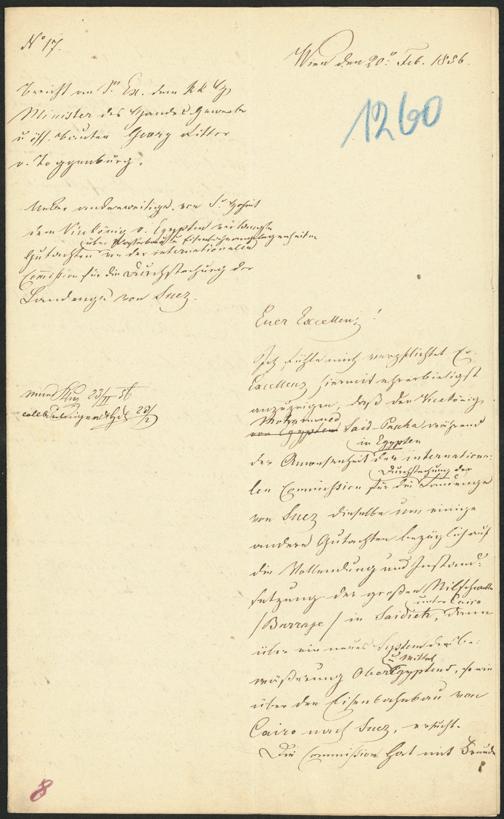 No 17.
Wien den 20n Feb. 1856.
1260
Bericht an Sr. Ex. dem kk
Minister des Handels Gewerbe
u öff. Bauten Georg Ritter
v. Toggenburg.
Ueber anderweitige, von Sr. Hoheit
dem Vicekönig v. Egypten verlangte
über Wasserbau u Eisenbahn
Gutachten von der internationalen
Comission für die Durchstechung der
Landenge von Suez.
Euer Excellenz!
Ich fühle mich verpflichtet Eu.
Excellenz hiermit ehrerbietigst
anzuzeigen, daß der Vicekönig
Mohammed
von Egypten Said-Pascha während
in Egypten
der Anwesenheit der internationa-
Durchstechung der
len Commission für die Landenge
von Suez dieselbe um einige
andere Gutachten bezüglich auf
die Vollendung und Instand-
setzung der großen Nilschleuse
unter Cairo
/Barrage/ in Saidieh, dann
über ein neues System der Be-
u Mittel
wässerung Ober Egyptens, sowie
über den Eisenbahnbau von
Cairo nach Suez, ersucht.
Die Commission hat mit
8